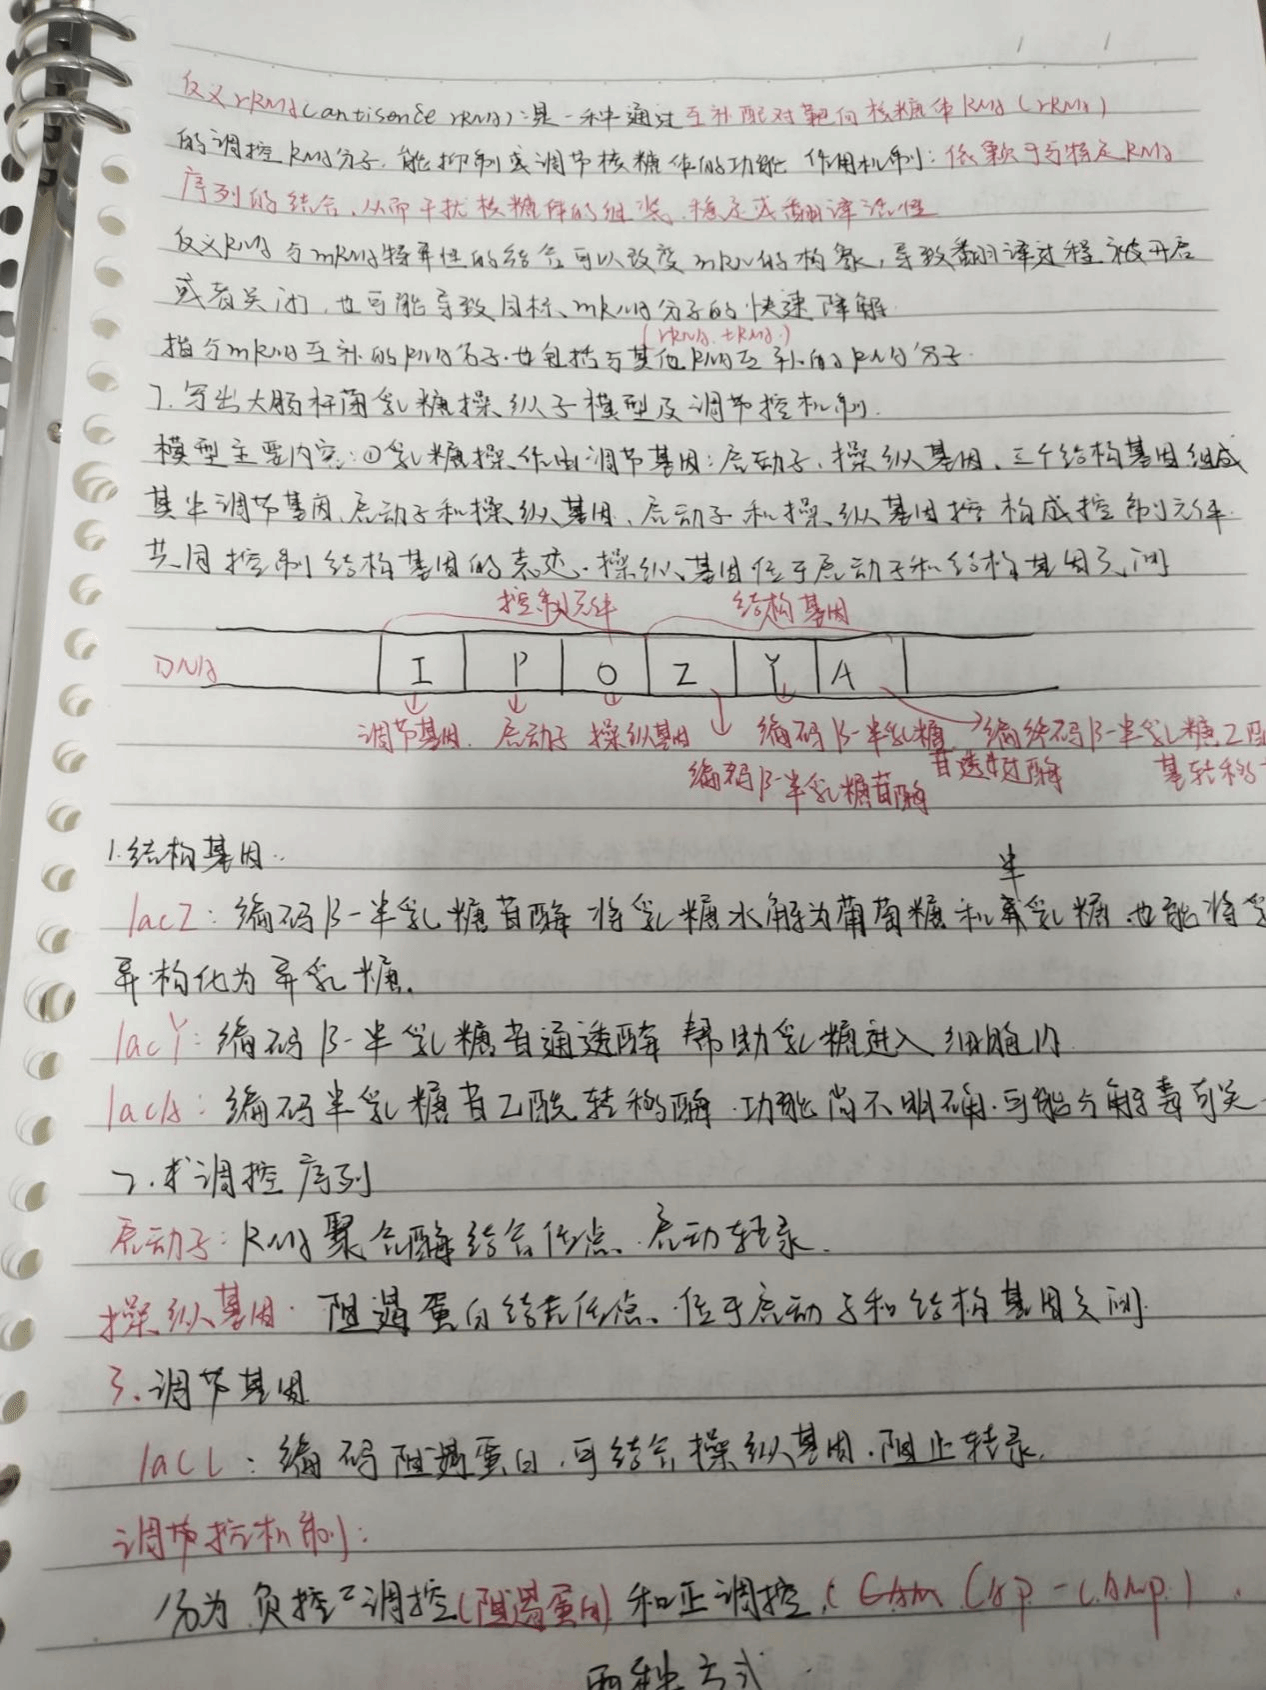 反义rRNA(antisence rRNA):是一种通过互补配对靶向核糖体RNA(rRNA)
的调控RNA分子,能抑制或调节核糖体的功能 作用机制:依赖于与特定RNA
序列的结合,从而干扰核糖体的组装、稳定或翻译活性
反义RNA与mRNA特异性的结合可以改变mRN的构象,导致翻译过程被开启
或者关闭,也可能导致目标mRNA分子的快速降解
(rRNA.tRNA.)
指与mRNA互补的RNA分子.也包括与其他RNA互补的RNA分子.
7.写出大肠杆菌乳糖操纵子模型及调节控机制.
模型主要内容:①乳糖操作由调节基因:启动子、操纵基因、三个结构基因组成
其中调节基因、启动子和操纵基因、启动子和操纵基因 构成控制元件
共同控制结构基因的表达.操纵基因位于启动子和结构基因之间
控制元件 结构基因
DNA I P O Z Y A
调节基因. 启动子 操纵基因 编码β-半乳糖 编码β-半乳糖乙酰
编码β-半乳糖苷酶 苷透过酶 基转移
1.结构基因..
lacZ:编码β-半乳糖苷酶 将乳糖水解为葡萄糖和半乳糖 也能将乳
异构化为异乳糖.
lacY:编码β-半乳糖苷通透酶 帮助乳糖进入细胞内
lacA:编码半乳糖苷乙酰转移酶.功能尚不明确.可能与解毒有关
2.调控序列
启动子:RNA聚合酶结合位点、启动转录.
操纵基因.阻遏蛋白结合位点、位于启动子和结构基因之间.
3.调节基因
lacI:编码阻遏蛋白,可结合操纵基因.阻止转录.
调节控机制:
分为负控 调控(阻遏蛋白)和正调控.(CAP-cAMP).
两种方式